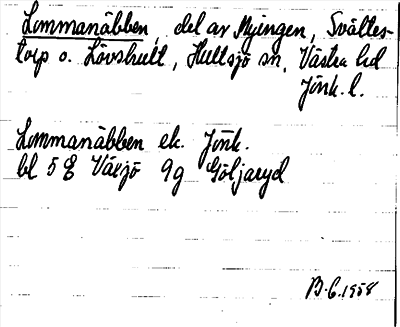 Lommanäbben, del av Myingen, Svältes-
torp o. Lövshult, Hultsjö sn, Västra hd
Jönk. l.
Lommanäbben ek. Jönk.
bl 5 E Växjö 9g Göljaryd
B.G. 1958